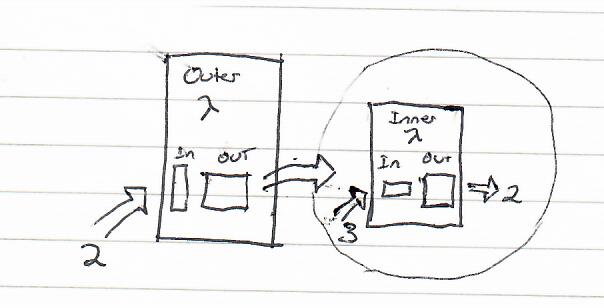 Outer
λ
In OUT
2
Inner
λ
In Out
3
2